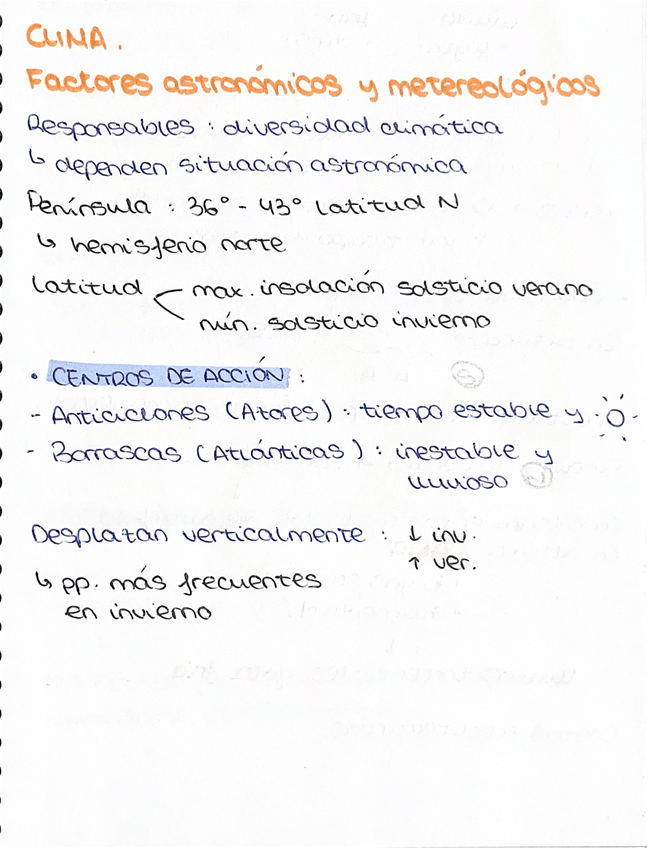 CLIMA.
Factores astronómicos y metereológicos
Responsables : diversidad climática
↳ dependen situación astronómica
Península : 36° - 43° latitud N
↳ hemisferio norte
latitud max. insolación solsticio verano
mín. solsticio invierno
• CENTROS DE ACCIÓN :
- Anticiclones (Atores) : tiempo estable y
- Borrascas (Atlánticas) : inestable y
lluvioso
Desplazan verticalmente : ↓ inv.
↑ ver.
↳ pp. más frecuentes
en invierno